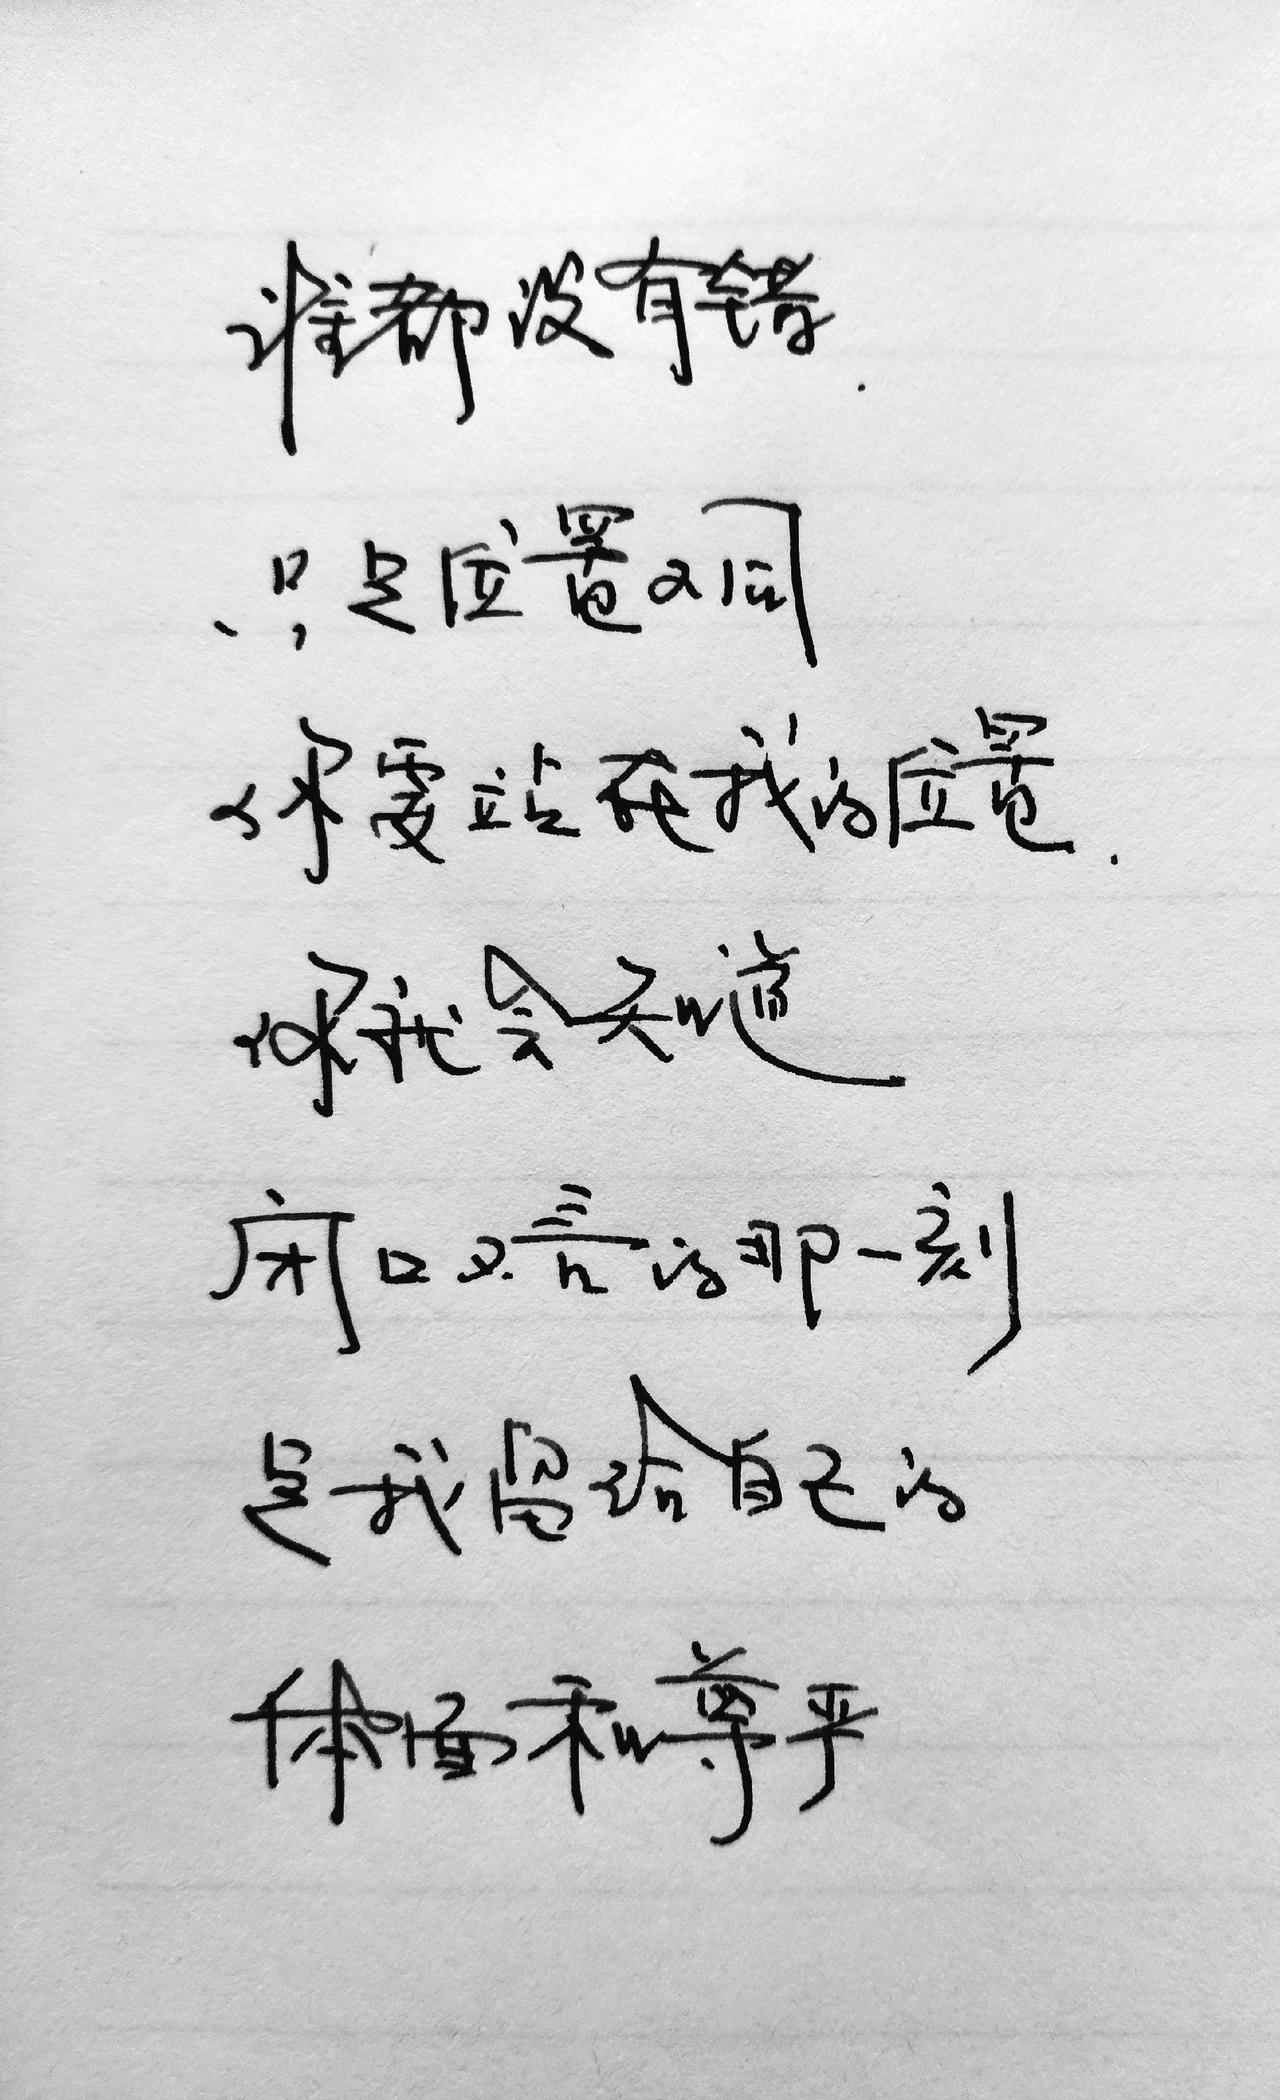 谁都没有错.
只是位置不同
你要站在我的位置.
你就会知道
闭口不言的那一刻
是我留给自己的
体面和尊严